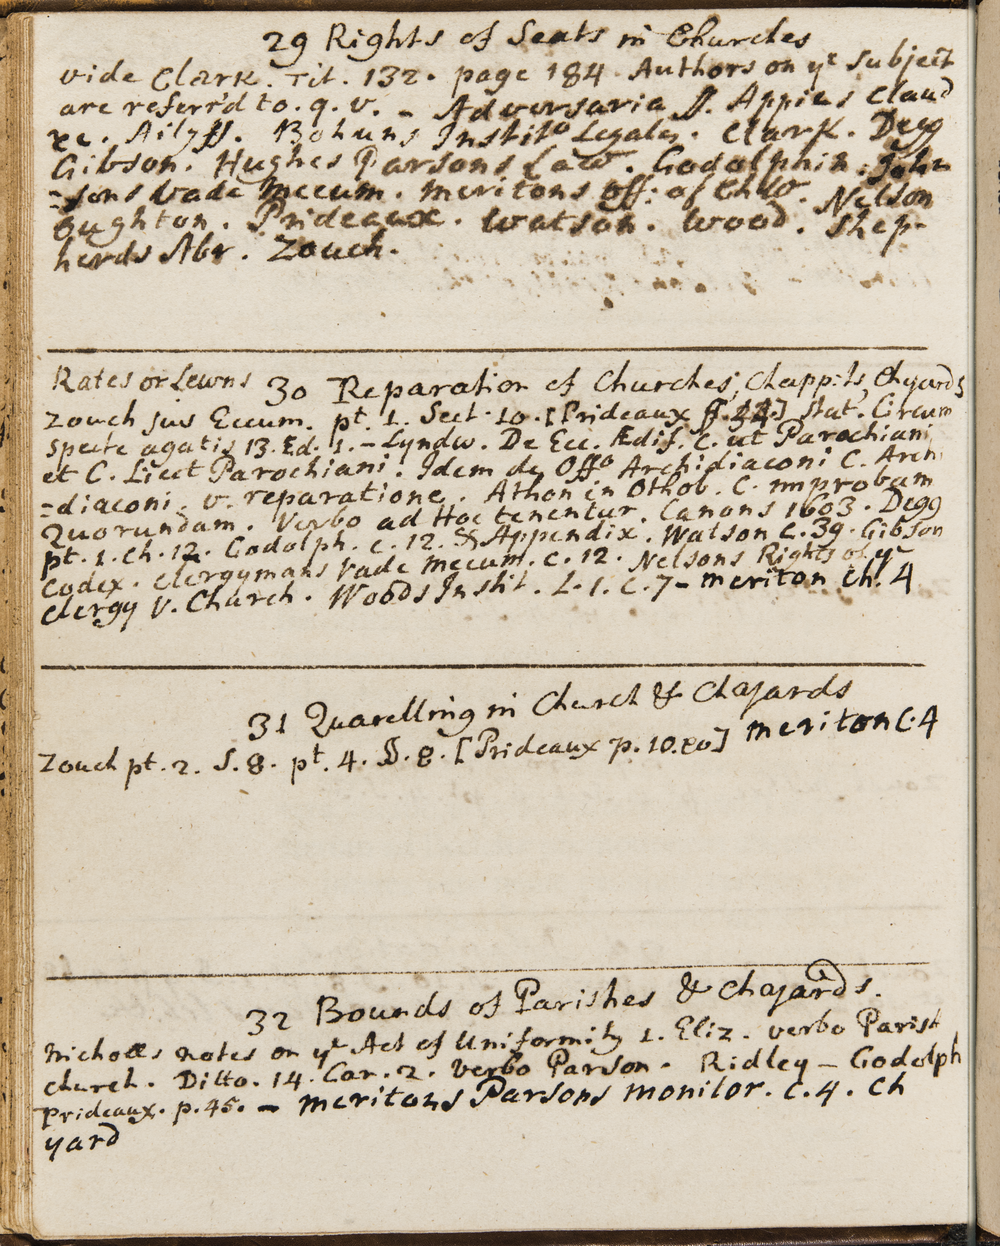 29 Rights of Seats in Churches
vide Clark. Tit. 132. page 184. Authors on yᵉ Subject
are referr'd to. q. v. - Adversaria ff. Appius Claud
&c. Ailyff. Bohuns Institᵒ Legales. Clark. Degg
Gibson. Hughes Parsons Law. Godolphin. John
=sons Vade Mecum. Meritons Off: of Chw. Nelson
Oughton. Prideaux. Watson. Wood. Shep-
herds Abr. Zouch.
Rates or Lewns 30 Reparation of Churches, Chappils, Chyards
Zouch jus Eccum. pt. 1. Sect. 10. [Prideaux ff. 34.] Stat. Circum
specte agatis 13. Ed. 1. - Lyndw. De Ecc. Ædif. C. ut Parochiani
et C. Licet Parochiani. Idem de Offᵒ Archidiaconi C. Archi
=diaconi. v. reparatione. Athon in Othob. C. improbam
Quorundam. Verbo ad Hoc tenentur. Canons 1603. Degg
pt. 1. Ch. 12. Godolph. c. 12. & Appendix. Watson C. 39. Gibson
Codex. Clergymans Vade Mecum. C. 12. Nelsons Rights of yᵉ
Clergy v. Church. Woods Instit. L. 1. C. 7 - Meriton Ch. 4
31 Quarelling in Church & Chayards
Zouch pt. 2. S. 8. pt. 4. S. 8. [Prideaux p. 10. 80] Meriton C. 4
32 Bounds of Parishes & Chayards.
Nicholls notes on yᵉ Act of Uniformity 1. Eliz. verbo Parish
church. Ditto. 14. Car. 2. verbo Parson. Ridley - Godolph
Prideaux. p. 45. - Meritons Parsons Monitor. C. 4. Ch
yard